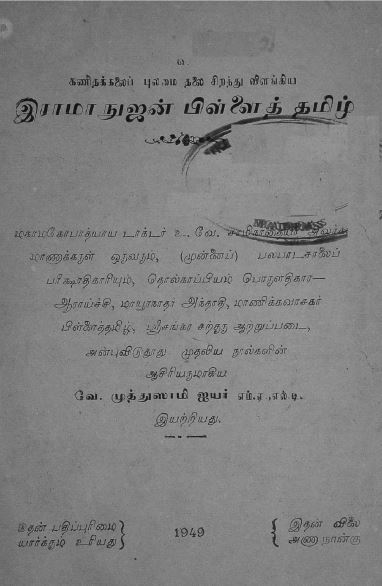 ௳
கணிதக்கலைப் புலமை தலை சிறந்து விளங்கிய
இராமாநுஜன் பிள்ளைத் தமிழ்
மகாமகோபாத்யாய டாக்டர் உ. வே. சாமிநாதையர் அவர்கள்
மாணாக்கருள் ஒருவரும், (முன்னைப்) பலபாடசாலைப்
பரிக்ஷாதிகாரியும், தொல்காப்பியம் பொருளதிகார—
ஆராய்ச்சி, மாயூரநாதர் அந்தாதி, மாணிக்கவாசகர்
பிள்ளைத்தமிழ், ஸ்ரீசங்கர சற்குரு ஆற்றுப்படை,
அன்புவிடுதூது முதலிய நூல்களின்
ஆசிரியருமாகிய
வே. முத்துஸாமி ஐயர் எம்.ஏ.,எல்.டி.
இயற்றியது.
இதன் பதிப்புரிமை
யார்க்கும் உரியது
1949
இதன் விலை
அணா நான்கு